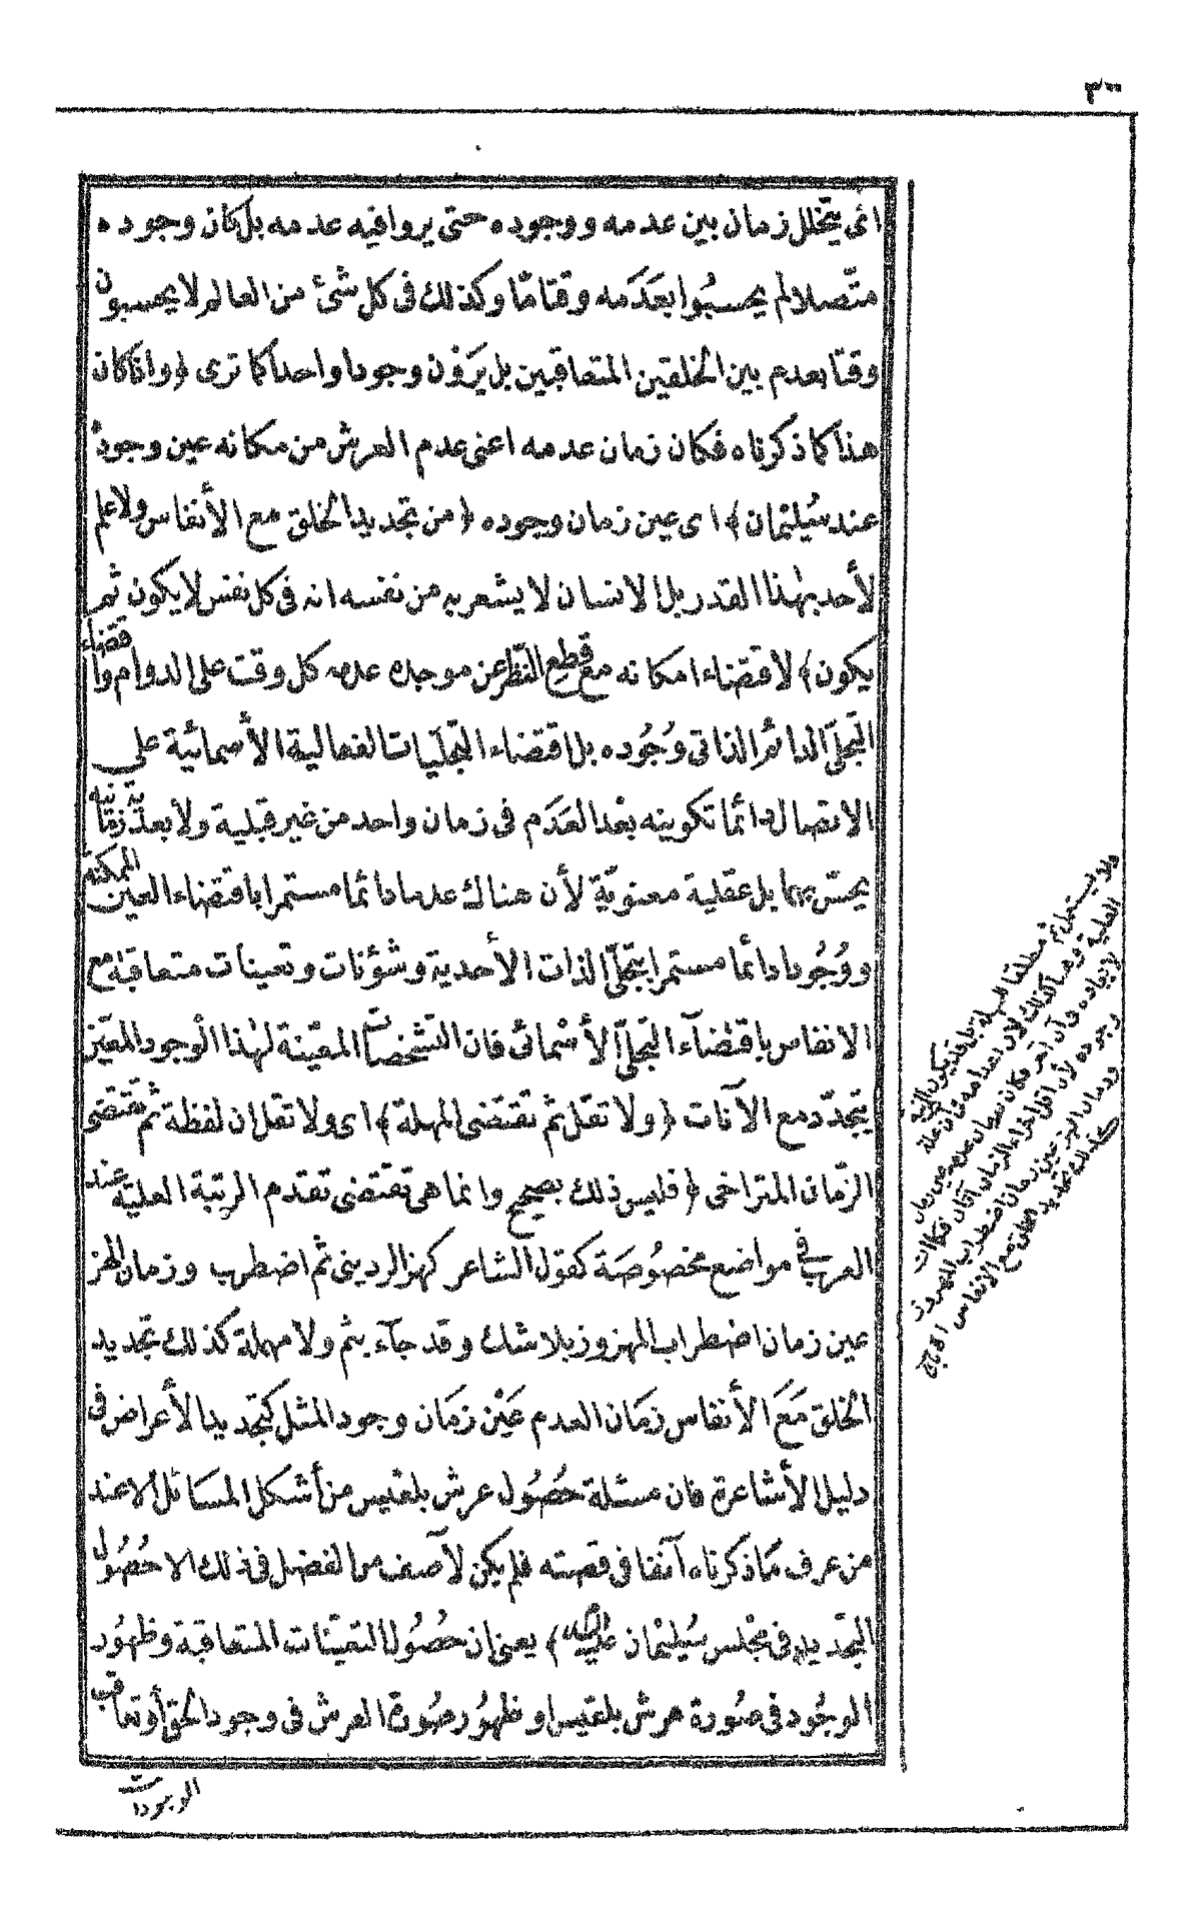 ٣٠٠
ائ يتخلل زمان بين عدمه ووجوده حتى يروا فيه عدمه بل كان وجوده
متّصلا لم يحسبُوا بعَدَمه وقتا مّا وكذلك فى كل شئ من العالم لا يحسبون
وقتا بعدم بين الخلقين المتعاقبين بل يَرَوْن وجودا واحدا كما ترى ﴿واذا كان
هذا كما ذكرناه فكان زمان عدمه اعنى عدم العرش من مكانه عين وجوده
عند سُليْمان﴾ اى عين زمان وجوده ﴿من تجديد الخلق مع الأنفاس ولا علم
لأحد بهٰذا القدر بل الانسان لا يشعر به من نفسه انه فى كل نفس لا يكون ثم
يكون﴾ لاقتضاء امكانه مع قطع النّظر عن موجده عدمه كل وقت على الدوام واقتضاء
التجلّى الدائم الذاتى وُجُوده بل اقتضاء التجلّيات الفعالية الأسمائية على
الاتصال دائما تكوينه بعْد العَدَم فى زمان واحد من غير قبلية ولا بعدية زمانية
يحسّ بهما بل عقلية معنويّة لأن هناك عدما دائما مستمرا باقتضاء العين الممكنة
ووُجُودا دائما مستمرا بتجلّى الذات الأحدية وشؤنات وتعينات متعاقبة مع
الانفاس باقتضآء التجلّى الأسْمائى فان التشخصات المعيّنة لهٰذا الوجود المعيّن
يتجدّد مع الآنات ﴿ولا تقل ثم تقتضى المهلة﴾ اى ولا تقل ان لفظة ثم تقتضى
الزّمان المتراخى ﴿فليس ذلك بصحيح وانما هى تقتضى تقدم الرتبة العلية عند
العرب فى مواضع مخصُوصَة كقول الشاعر كهز الردينى ثم اضطرب وزمان الهز
عين زمان اضطراب المهزوز بلا شك وقد جآء بثم ولا مهلة كذلك تجديد
الخلق مَعَ الأنفاس زمَان العدم عَيْن زمَان وجود المثل كتجديد الأعراض فى
دليل الأشاعرة فان مسئلة حصُول عرش بلقيس من أشكل المسَائل الا عند
من عرف مَا ذكرناه آنفا فى قصته فلم يكن لآصف من الفضل فى ذلك الا حُصُول
التجديد فى مجْلس سُليْمان عليه السلام﴾ يعنى ان حُصُول التعيّنات المتعاقبة وظهُور
الوجُود فى صُورة عرش بلقيس او ظهُور صُورة العرش فى وجود الحق أو تعاقب
الوجودات
ولا يستعمل ثم مطلقا للمهلة بل قد يكون للرتبة
العلية وهنا كذلك لان اعدامه فى آن علة
لايجاده فى آن آخر فكان زمان عدمه عين زمان
وجوده لأن اقل اجزاء الزمان آنان فكما ان
زمان الهز عين زمان اضطراب المهزوز
كذلك تجديد الخلق مع الأنفاس